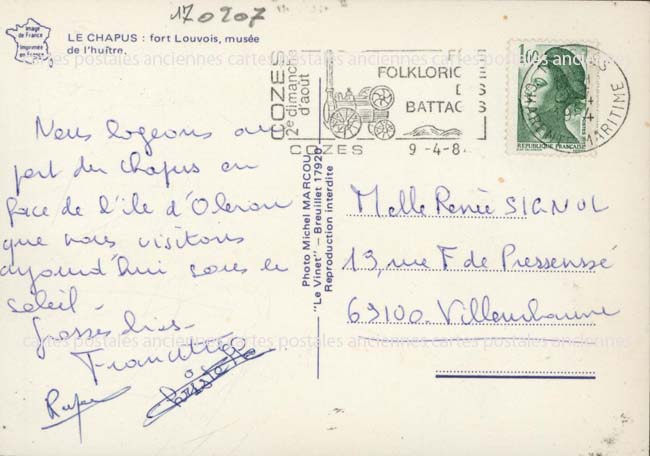 170907
Image
de France
Imprimée
en France
LE CHAPUS : fort Louvois, musée
de l'huître.
COZES
2e dimanche
d'août
FOLKLORI
BATTAGES
COZES 9 -4-8
1,60
REPUBLIQUE FRANÇAISE
CHARENTE MARITIME
cartes postales anciennes cartes postales anciennes cartes postales anciennes
Nous logeons au
port du Chapus en
face de l'île d'Oleron
que nous visitons
aujourd'hui sous le
soleil -
Grosses bises -
Photo Michel MARCOU
"Le Vinet" - Breuillet 17920
Reproduction interdite
Melle Renée SIGNOL
13, rue F de Pressensé
69100. Villeurbanne
cartes postales anciennes cartes postales anciennes cartes postales anciennes